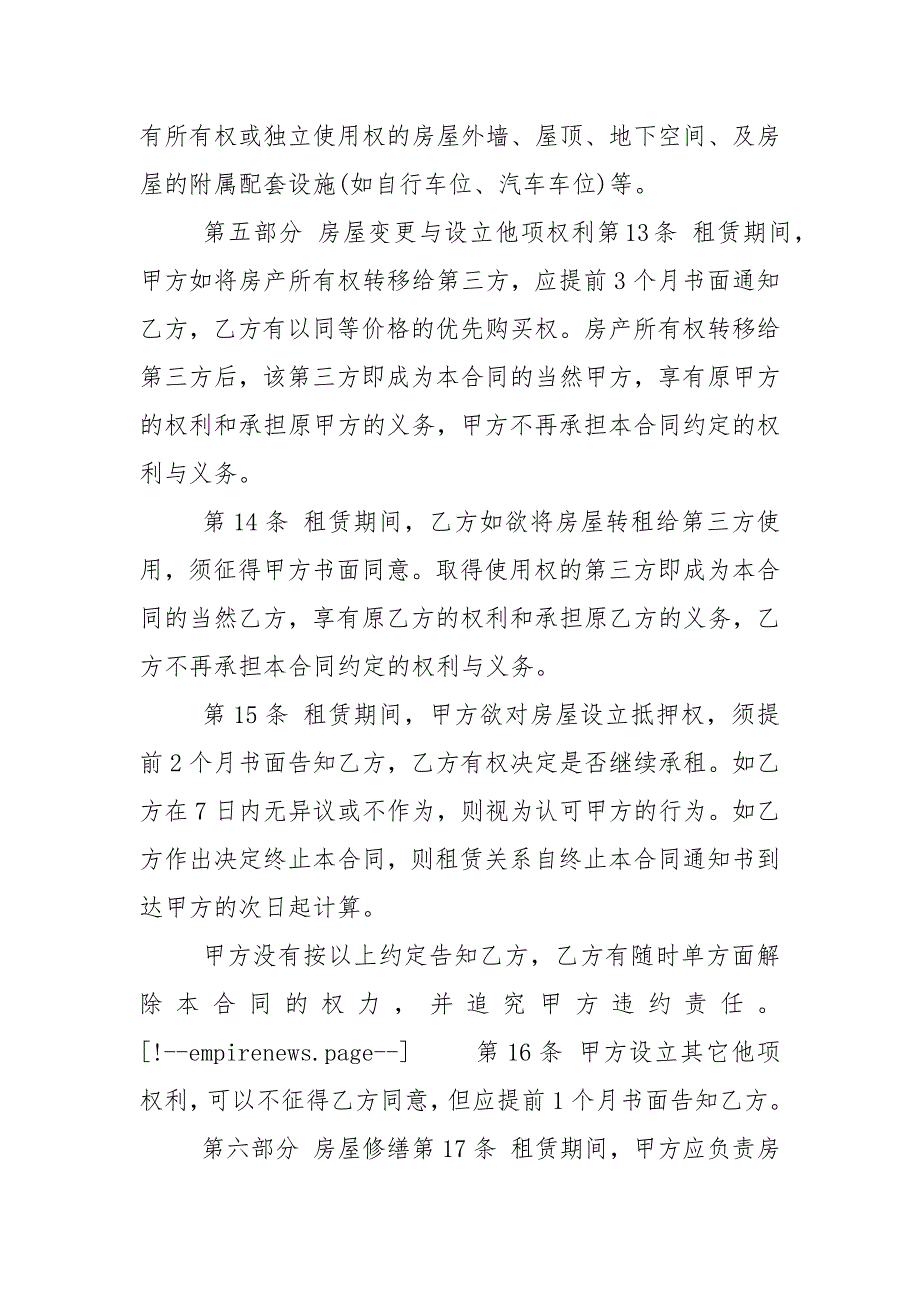 有所有权或独立使用权的房屋外墙、屋顶、地下空间、及房
屋的附属配套设施(如自行车位、汽车车位)等。
第五部分 房屋变更与设立他项权利第13条 租赁期间，
甲方如将房产所有权转移给第三方，应提前3个月书面通知
乙方，乙方有以同等价格的优先购买权。房产所有权转移给
第三方后，该第三方即成为本合同的当然甲方，享有原甲方
的权利和承担原甲方的义务，甲方不再承担本合同约定的权
利与义务。
第14条 租赁期间，乙方如欲将房屋转租给第三方使
用，须征得甲方书面同意。取得使用权的第三方即成为本合
同的当然乙方，享有原乙方的权利和承担原乙方的义务，乙
方不再承担本合同约定的权利与义务。
第15条 租赁期间，甲方欲对房屋设立抵押权，须提
前2个月书面告知乙方，乙方有权决定是否继续承租。如乙
方在7日内无异议或不作为，则视为认可甲方的行为。如乙
方作出决定终止本合同，则租赁关系自终止本合同通知书到
达甲方的次日起计算。
甲方没有按以上约定告知乙方，乙方有随时单方面解
除本合同的权力，并追究甲方违约责任。
[!--empirenews.page--] 第16条 甲方设立其它他项
权利，可以不征得乙方同意，但应提前1个月书面告知乙方。
第六部分 房屋修缮第17条 租赁期间，甲方应负责房